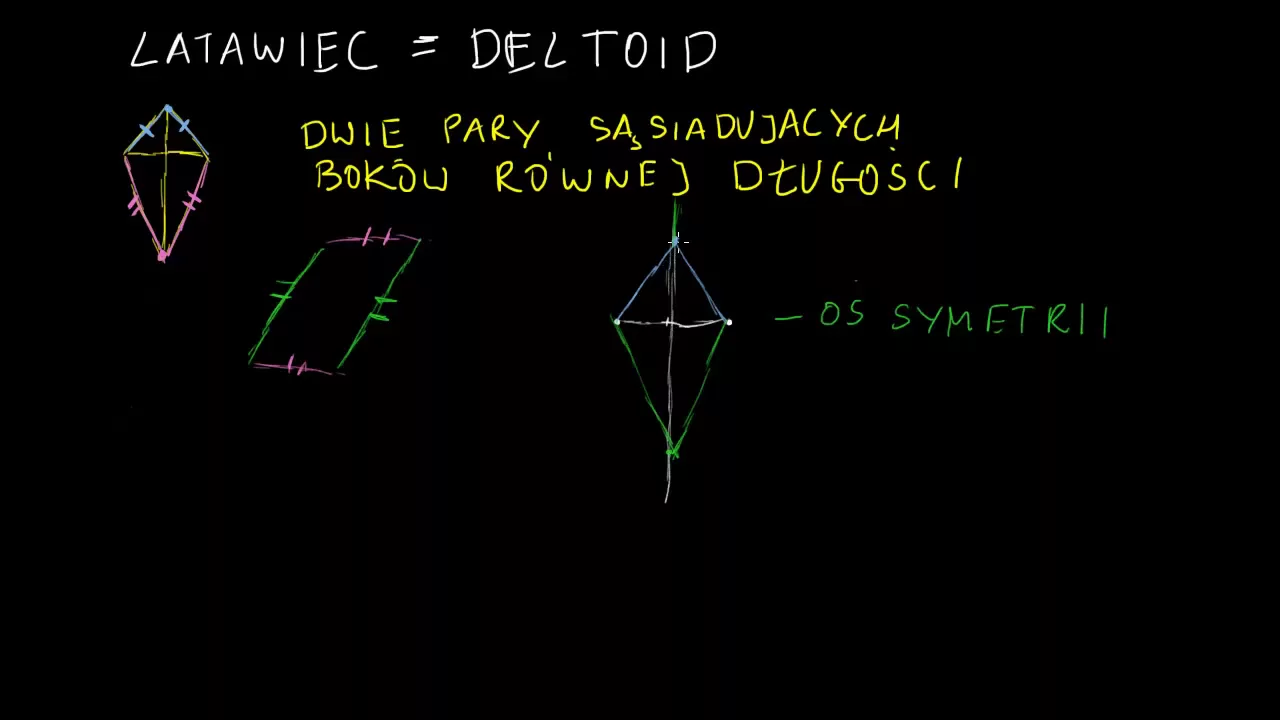 LATAWIEC = DELTOID
DWIE PARY SĄSIADUJACYCH
BOKÓW RÓWNEJ DŁUGOŚCI
- OŚ SYMETRII